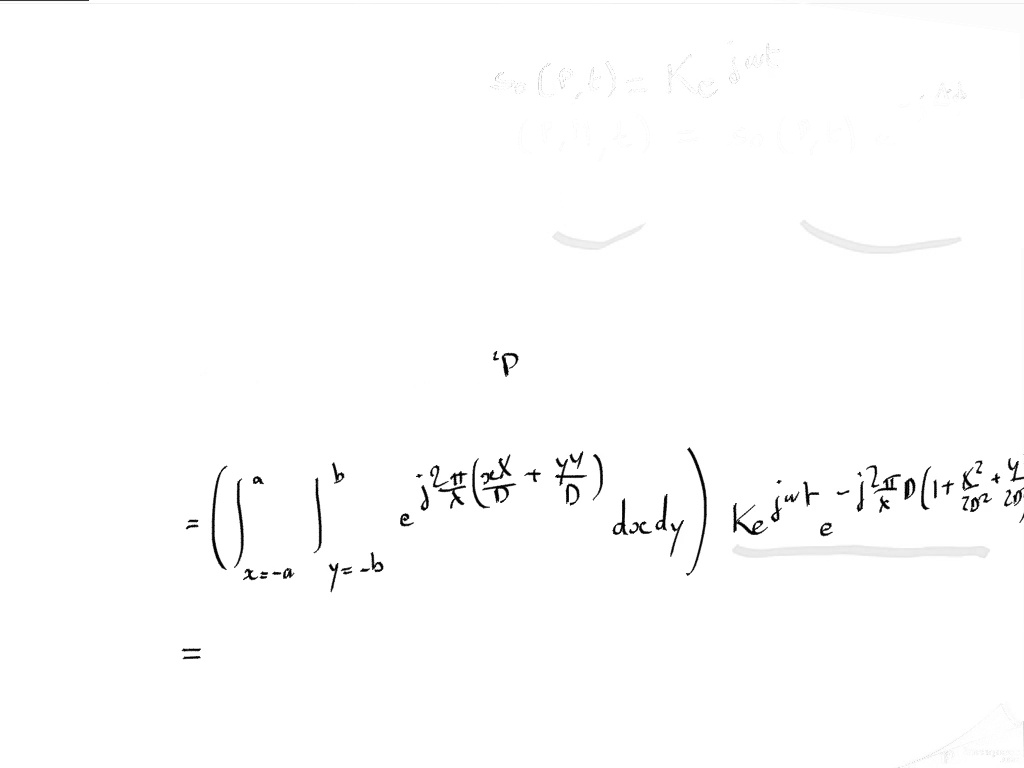 s₀(P,t) = K e^{jωt}
(P,M,t) = s₀(P,t)
'P
= ( ∫_{x=-a}^{a} ∫_{y=-b}^{b} e^{j 2π/λ (xX/D + yY/D)} dx dy ) K e^{jωt} e^{-j 2π/λ D(1 + X²/2D² + Y/2D
=